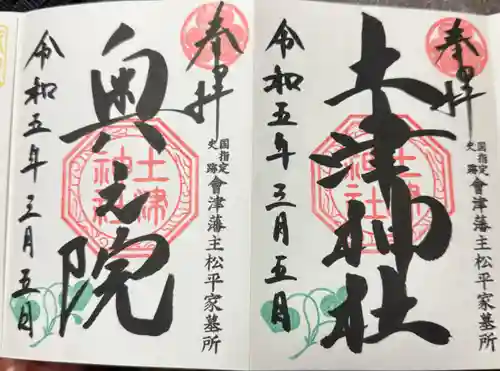 奉拝
国指定史跡
會津藩主松平家墓所
土津神社
土津神社
令和五年三月五日
奉拝
国指定史跡
會津藩主松平家墓所
奥之院
土津神社
令和五年三月五日